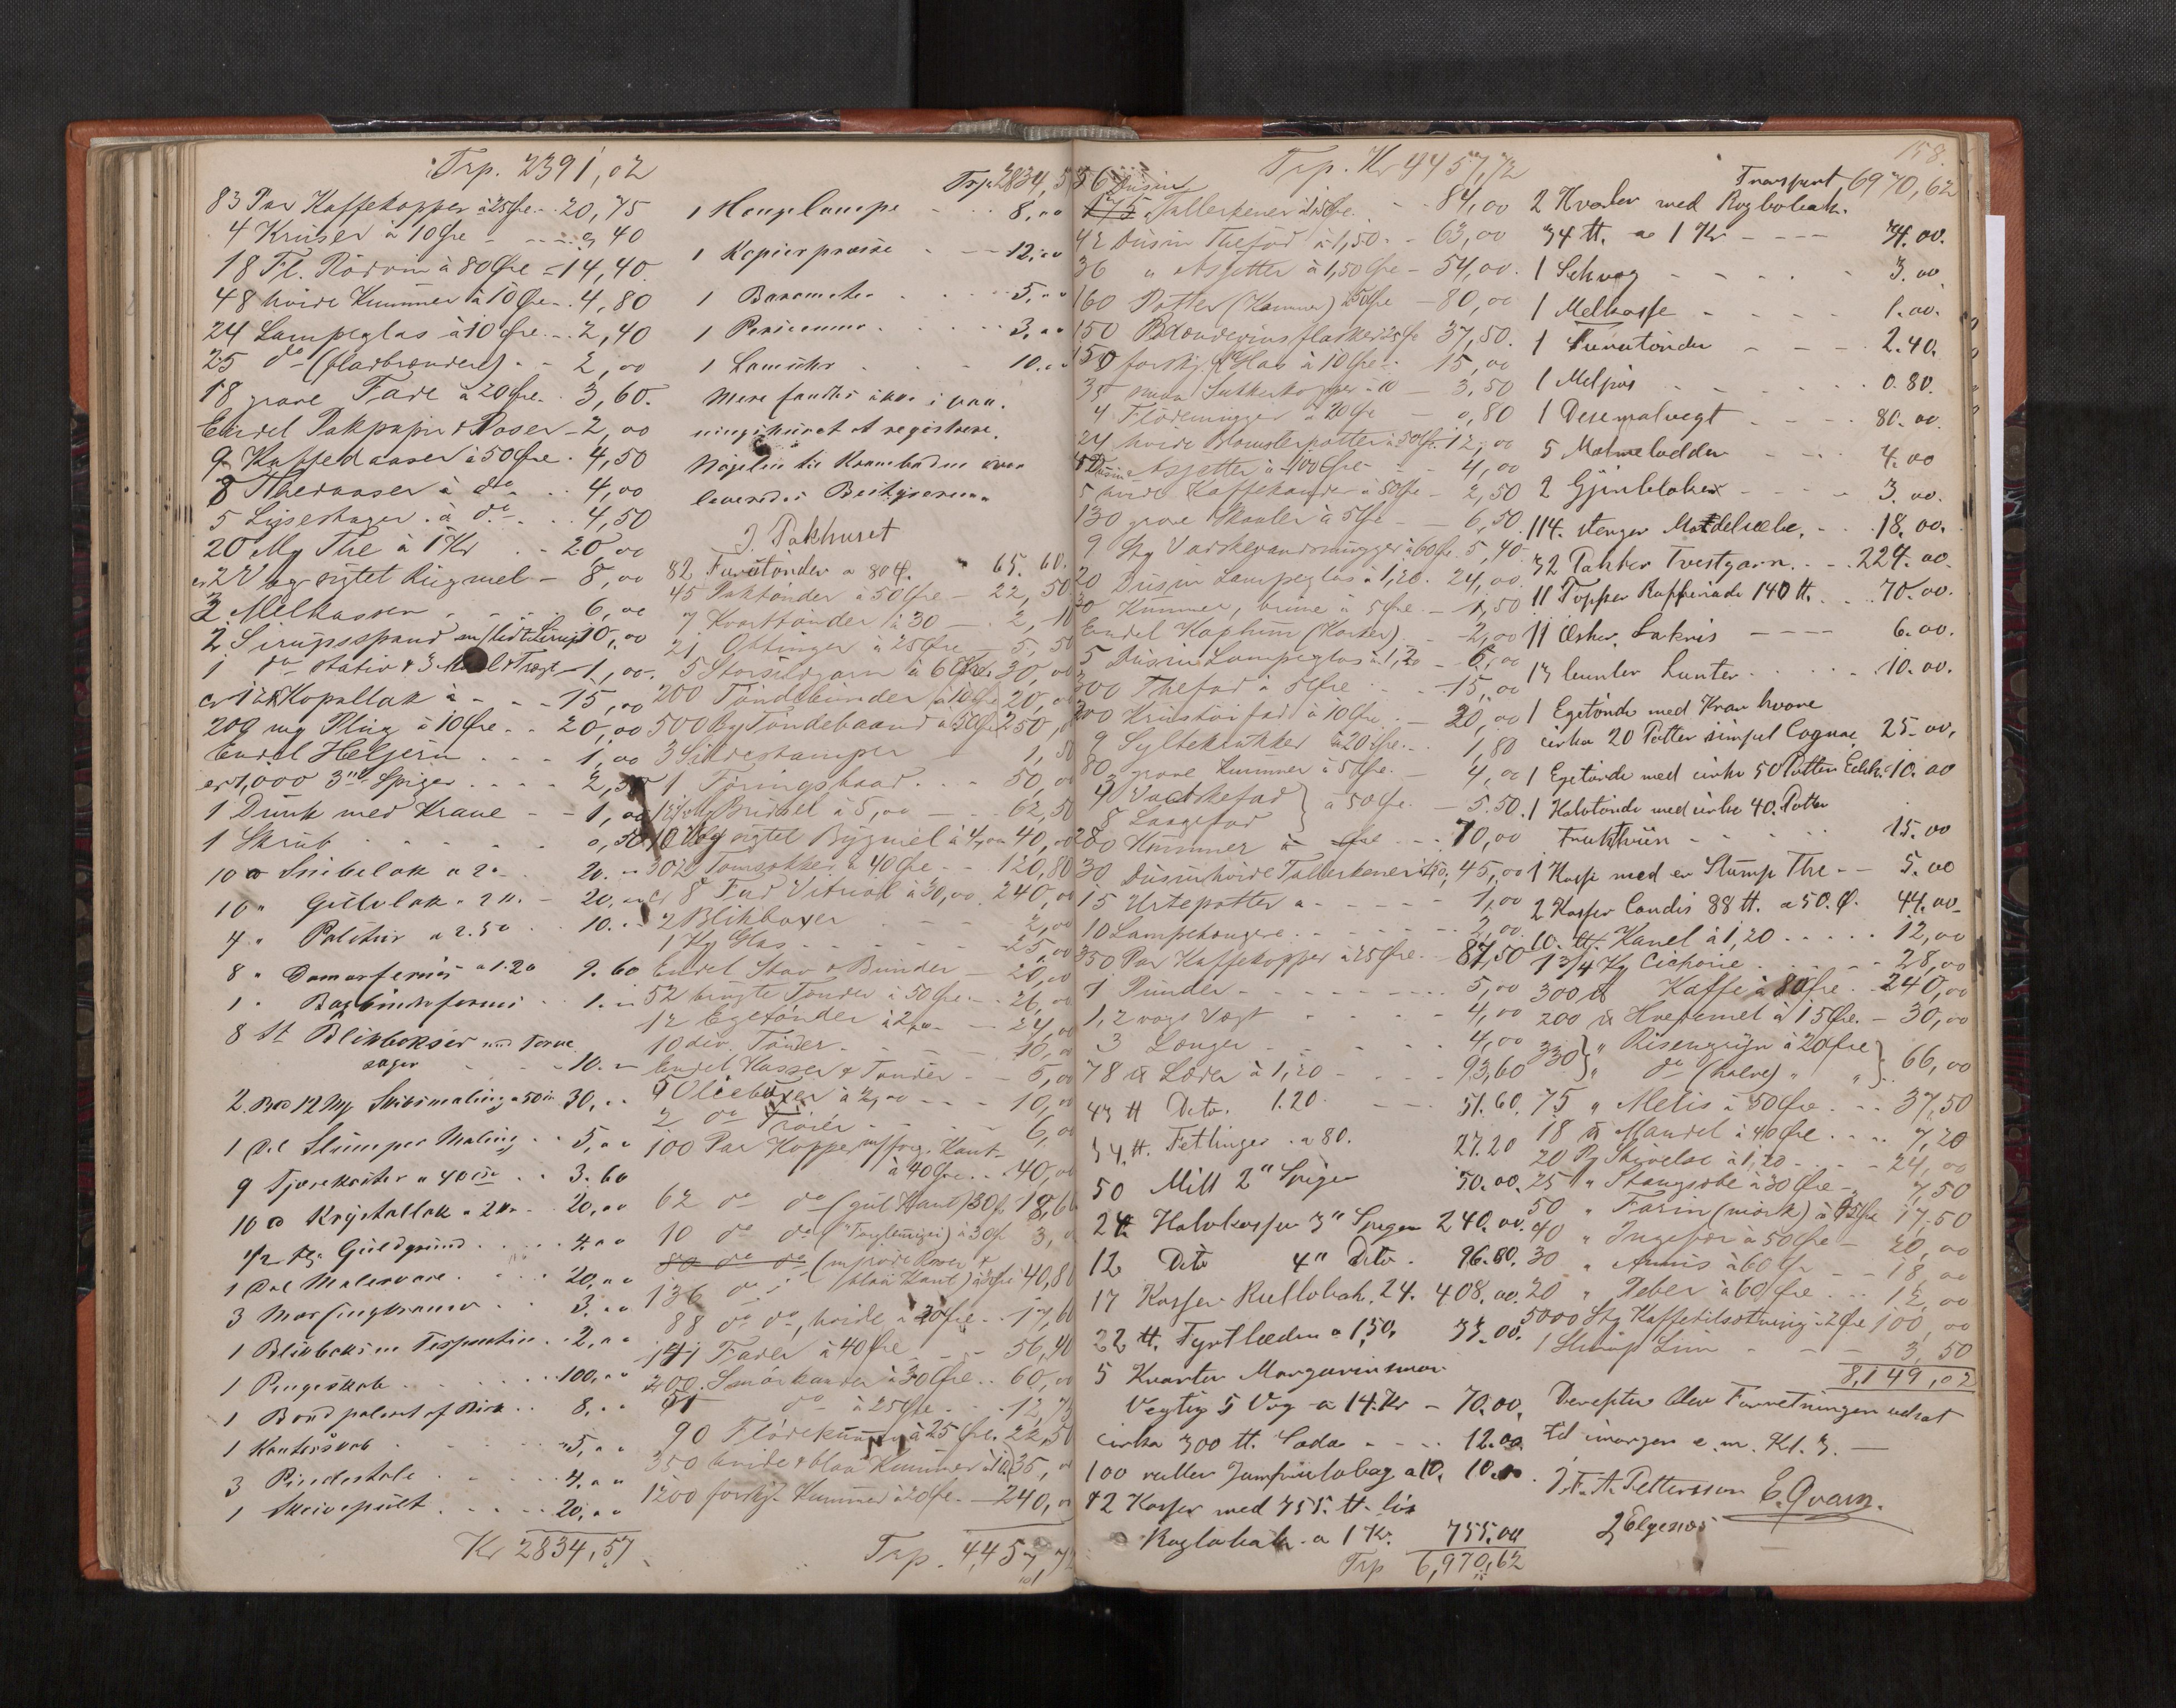 Trp. 2391,02
83 Par Kaffekopper à 25 Øre - 20,75
4 Krüser à 10 Øre - - - 0,40
18 Fl. Rödvin à 80 Øre - 14,40
48 hvide Kummer à 10 Øre - 4,80
24 Lampeglas à 10 Øre - 2,40
25 do (fladbrændere) - - 2,00
18 grove Fade à 20 Øre - 3,60
Endel Pakpapir & Poser - 2,00
9 Kaffedaaser à 50 Øre - 4,50
8 Thedaaser à do - - 4,00
5 Lysestager à do - - 4,50
20 Mg The à 1 Kr - - 20,00
2 Vog sigtet Rugmel - 8,00
3 Melkasser - - - 6,00
2 Sirupsspand m/lidt Sirup 10,00
1 do Stativ & 3 & Tragt - 1,00
Kopallak à - - - 15,00
209 mg Plüg à 10 Øre - - 20,00
Endel Heljern - - - 1,00
1,000 3" Spiger - - - 2,50
1 Dunk med Krane - - 1,00
1 Skrub - - - 0,50
10 a 2. - 20.
10 " Gulvlak a 2 Kr. - 20.
4 " Politur a 2.50 - 10.
8 " Damarfernis a 1.20 9.60
1 " - 1.
8 St Blikbokser med Farve
sager - - 10.
2 12 Mg Skibsmaling a 50 30.
1 Del Slumper Maling - - 5.
9 Tjærekoster a 40 - - 3.60
10 Krystallak a 2 Kr - 20,00
1/2 Kg Guldgrund - - - 4.
1 Del Malervare - - - 20.
3 - - 3.
1 Blikboks m Terpentin - - 2.
1 Pengeskab - - - 100.
1 Bord paleret af Birk - - 8.
1 Kontorskab - - - 5.
3 Pindestole - - - 4.
1 Skrivepult - - - 20.
Kr 2834,57
Trp. 2834,5
1 Hengelampe - - 8,00
1 Kopierpresse - - 12,00
1 Barometer - - - 5,
1 - - 3.
1 - - - 10.
Mere fandtes ikke i
at registrere.
Nøglen til Krambuden blev
leveredes
I Pakhuset
82 Furutönder a 80 Ø. " 65.60
45 Paktönder à 50 Øre - 22,50
7 Kvarttönder à 30 - 2,10
21 Ottinger à 25 Øre - 5,50
5 Storsildgarn à 6 Kr. 30,00
200 Töndebunder à 10 Ø 20,00
500 Bg Töndebaand à 50 Øre 250,
3 Sildestamper 1,50
1 Föringsbaad - - - 50,00
à 5,00 - 62,50
10 Vog sigtet Bygmel à 4,00 40,00
302 Tomsekker à 40 Øre - 120,80
8 Fad Vitriol à 30,00 240,00
2 Blikboxer - - 2,00
1 Kg Glas - - - 25,00
Endel Stav & Bunder - 20,00
52 brugte Tönder à 50 Øre - 26,00
12 Egetönder à 2,00 - 24,00
10 div. Tönder - - - 10,00
Endel Kasser & Tönder - - 5,00
5 Olieboxer à 2,00 - - 10,00
2 do Tröier - - - 6,00
100 Par Kopper m/forg. Kant
à 40 Øre - - 40,00
62 do do (gul Kant) 30 Ø 18,60
10 do do à 30 Ø 3,
80 do do (m/röde Roser &
136 do blaa Kant) à 30 Øre 40,80
88 do do, hvide à 20 Øre - 17,60
141 Fader à 40 Øre - - 56,40
200 Smörkander à 30 Øre - 60,00
51 do à 25 Øre - 12,75
90 Flödekummer à 25 Øre - 22,50
350 hvide & blaa Kummer à 10 35,00
1200 forskj. Kummer à 20 Øre - 240,00
Trp. 4457,72
Trp. Kr 4457,72
158.
56 Düsin
Tallerkener à 1,50 Øre - 84,00
42 Düsin Thefad à 1,50 - 63,00
36 " Asjetter à 1,50 Øre - 54,00
160 Potter (Kummer) à 50 Øre - 80,00
150 Brændevinsflasker à 25 Øre 37,50
150 forskj. Glas à 10 Øre - 15,00
35 smaa Sukkerkopper à 10 - 3,50
4 Flödemugger à 20 Øre - 0,80
24 hvide Blomsterpotter à 50 Ø - 12,00
4 Düsin Asjetter à 100 Øre - 4,00
5 hvide Kaffekander à 50 Øre - 2,50
130 grove Skaaler à 5 Øre - - 6,50
9 Stg Vaskevandsmugger à 60 Ø. 5,40
20 Düsin Lampeglas à 1,20 - 24,00
30 Kummer, brune à 5 Øre - 1,50
Endel Kaphün (Korker) - - 2,00
5 Düsin Lampeglas à 1,20 - 6,00
300 Thefad à 5 Øre - - 15,00
200 Krustöifad à 10 Øre - 20,00
9 Syltekrukker à 20 Øre - 1,80
80 grove Kummer à 5 Øre - 4,00
3 Vadskefad } à 50 Øre - 5.50
8 Laagefad
280 Kummer à Øre - - 70,00
30 Düsin hvide Tallerkener à 1,50, 45,00
15 Urtepotter a - - - 1,00
10 Lampekoupere - - - 2,00
350 Par Kaffekopper à 25 Øre - 87,50
1 Pünder - - - 5,00
1, 2 vogs Vægt - - - 4,00
3 Longer - - - 4,00
78 tt Læder à 1,20 - - 93,60
43 tt Dito. 1.20 - - 51.60
34 tt. Fetlinger a 80. 27.20
50 Mill 2" Spiger 50.00
24 Halvkasser 3" Spiger 240.00
12 Dito 4" Dito - 96.00
17 Kasser Rullobak. 24. 408.00
22 tt. Fyrtlæder a 1,50. 33.00
5 Kvarter Margarinsmør
Vegtig 5 Vog a 14 Kr - 70.00
cirka 300 tt. Soda - - - 12.00
100 ruller Jomfrutobag a 10. 10.00
42 Kasser med 755. tt. løs
Rugtobak a 1 Kr. 755.00
Trp 6,970,62
Transport 6970,62
2 Kvarter med Rogtobak.
34 tt. a 1 Kr - - - 34.00.
1 Schvog - - - 3.00
1 Melkasse - - - 1.00.
1 Furutönder - - - 2.40.
1 - - 0.80.
1 Desemalvegt - - 80.00.
5 Malmelodder - - 4.00
2 - - 3.00.
114. stenger - - 18.00.
32 Pakker Tvestgarn - - 224.00.
11 Topper Raffinade 140 tt. - 70.00.
11 Æsker Lakris - - - 6.00.
13 bunter Lunter - - - 10.00.
1 Egetönde med Kran hvore
cirka 20 Potter simpel Cognac 25.00.
1 Egetönde med cirka 50 Potter Edik. 10.00
1 Halvtönde med cirka 40. Potter
Fruktviin - - - 15.00
1 Kasse med en Slump The - - 5.00
2 Kasser Candis 88 tt. a 50. Ø. 44.00
10. tt. Kanel à 1,20 - - 12,00
1 3/4 Kg Cichorie - - - 28,00
300 tt Kaffe à 80 Øre - 240,00
200 tt Hvedemel à 15 Øre - 30,00
330 } " Risengryn à 20 Øre } 66,00
" do (halve) " "
75 " Melis à 50 Øre - - 37,50
18 tt Mandel à 40 Øre - - 7,20
20 Pg Stivelse à 1,20 - - 24,00
25 " Stangsæbe à 30 Øre - 7,50
50 " Farin (mörk) à 35 Øre 17,50
40 " Ingefær à 50 Øre - 20,00
30 " Annis à 60 Ør - - 18,00
20 " Peber à 60 Øre - - 12,00
5000 Stg Kaffetilsætning à 2 Øre 100,00
1 Slump Lim - - - 3,50
8,149,02
Derefter blev Forretningen udsat
til imorgen e.m. Kl. 3. —
J. F. A. Pettersson E. Qvam.
J Elgenæs